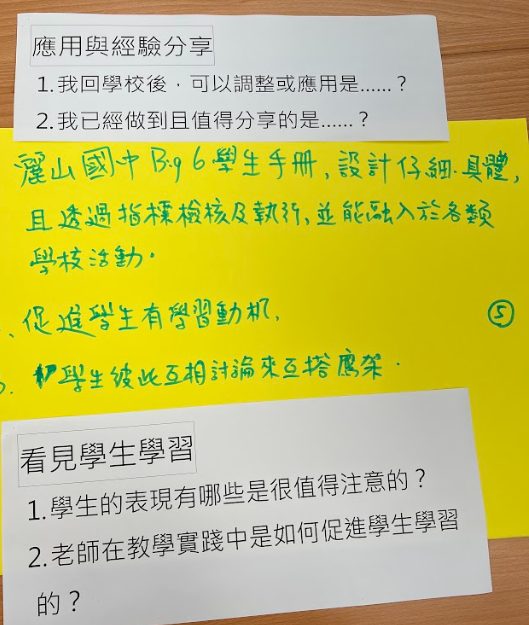 應用與經驗分享
1.我回學校後，可以調整或應用是......？
2.我已經做到且值得分享的是......？
麗山國中Big6學生手冊,設計仔細.具體,
且透過指標檢核及執行,並能融入於各類
學校活動.
、促進學生有學習動机,
⑤
學生彼此互相討論來互搭鷹架.
看見學生學習
1.學生的表現有哪些是很值得注意的？
2.老師在教學實踐中是如何促進學生學習
的？